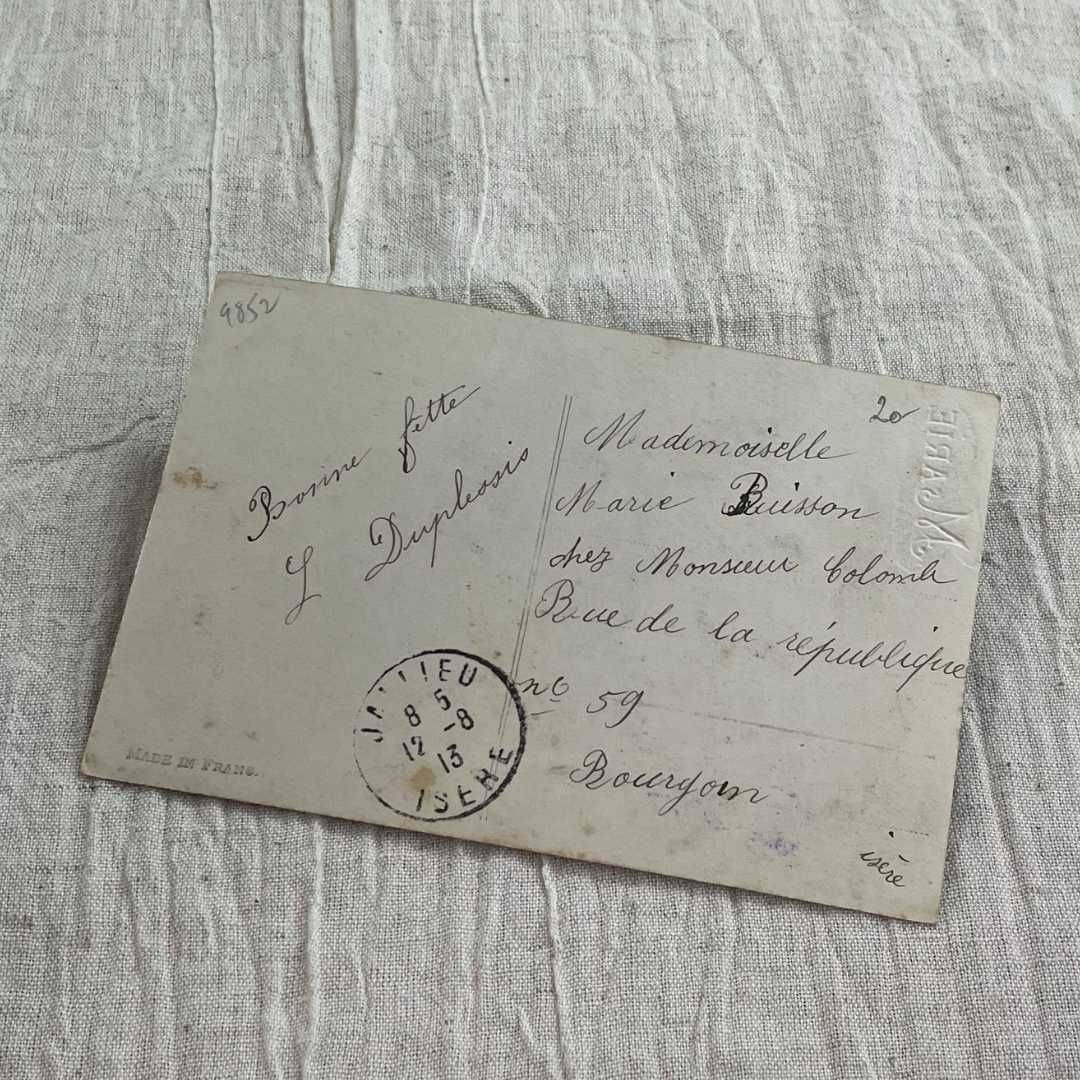 9852
Bonne fètte
L Duplessis
JALLIEU
8 5
12 -8
13
ISERE
MADE IN FRANC.
20
MARIE
Mademoiselle
Marie Buisson
chez Monsieur Colomb
Rue de la république
no 59
Bourgoin
isère